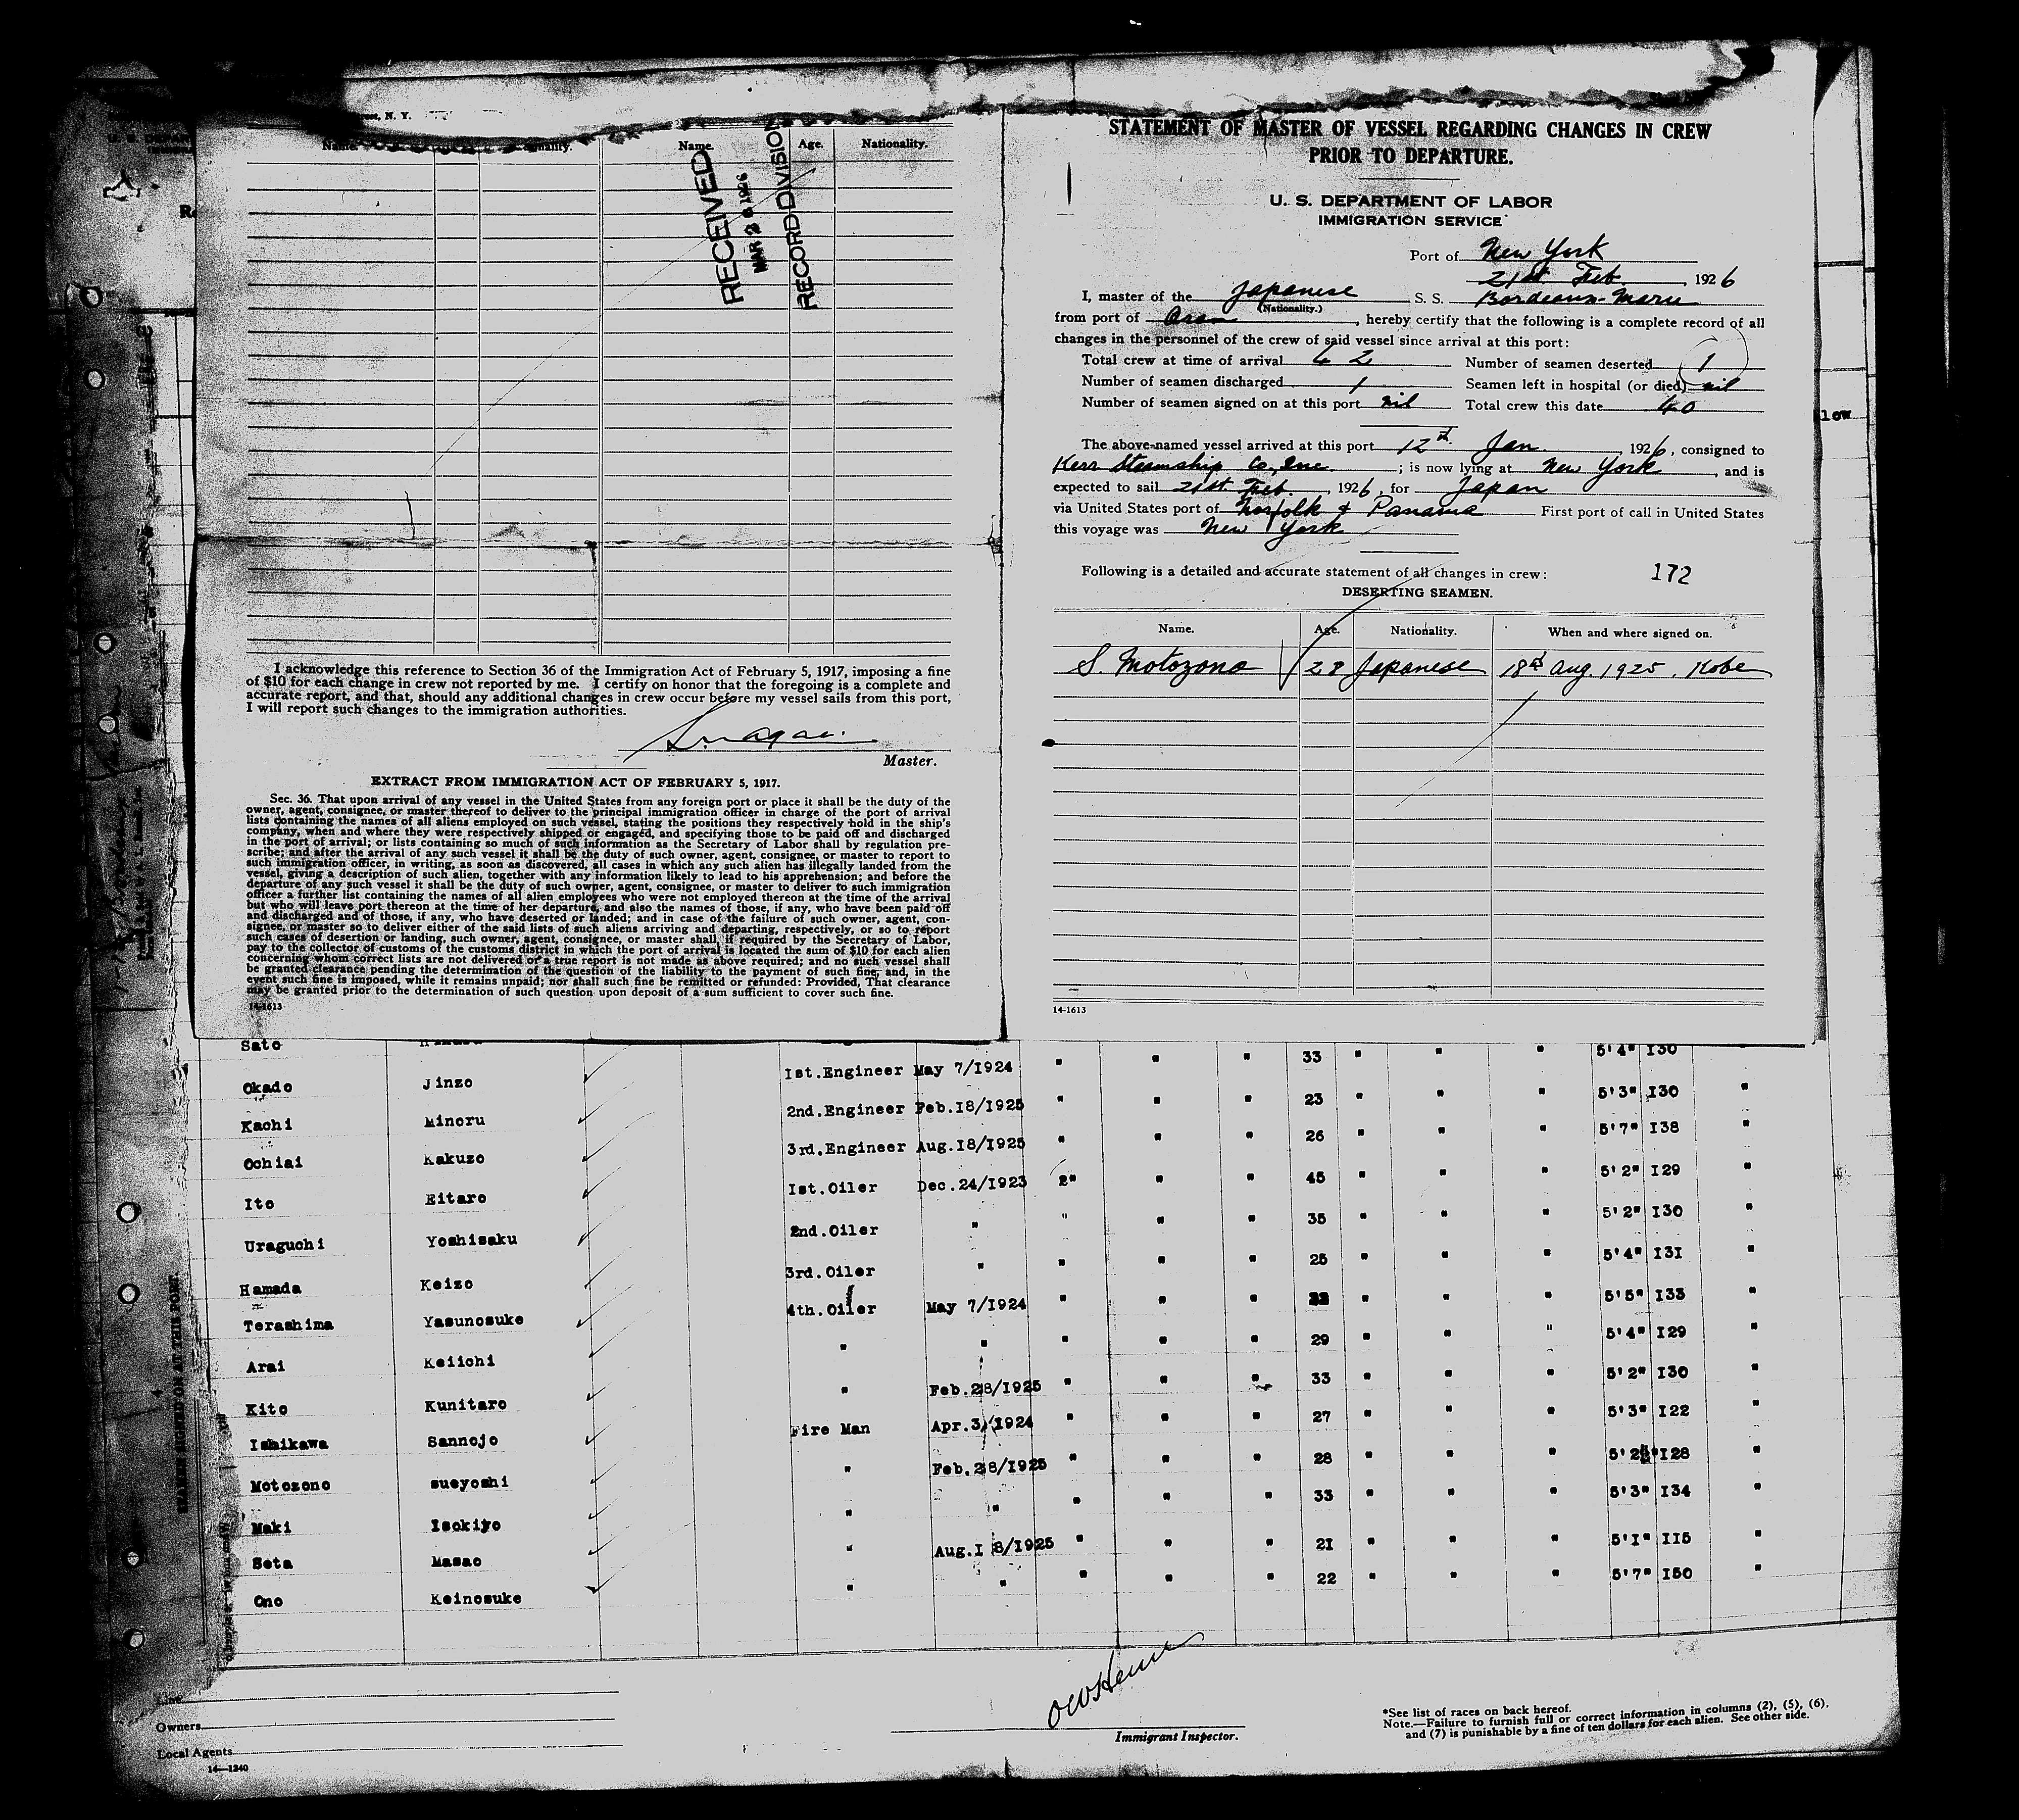 Name. Name. Age. Nationality.
RECEIVED
MAR 1926
RECORD DIVISION
I acknowledge this reference to Section 36 of the Immigration Act of February 5, 1917, imposing a fine
of $10 for each change in crew not reported by me. I certify on honor that the foregoing is a complete and
accurate report, and that, should any additional changes in crew occur before my vessel sails from this port,
I will report such changes to the immigration authorities.
Master.
EXTRACT FROM IMMIGRATION ACT OF FEBRUARY 5, 1917.
Sec. 36. That upon arrival of any vessel in the United States from any foreign port or place it shall be the duty of the
owner, agent, consignee, or master thereof to deliver to the principal immigration officer in charge of the port of arrival
lists containing the names of all aliens employed on such vessel, stating the positions they respectively hold in the ship's
company, when and where they were respectively shipped or engaged, and specifying those to be paid off and discharged
in the port of arrival; or lists containing so much of such information as the Secretary of Labor shall by regulation pre-
scribe; and after the arrival of any such vessel it shall be the duty of such owner, agent, consignee, or master to report to
such immigration officer, in writing, as soon as discovered, all cases in which any such alien has illegally landed from the
vessel, giving a description of such alien, together with any information likely to lead to his apprehension; and before the
departure of any such vessel it shall be the duty of such owner, agent, consignee, or master to deliver to such immigration
officer a further list containing the names of all alien employees who were not employed thereon at the time of the arrival
but who will leave port thereon at the time of her departure, and also the names of those, if any, who have been paid off
and discharged and of those, if any, who have deserted or landed; and in case of the failure of such owner, agent, con-
signee, or master so to deliver either of the said lists of such aliens arriving and departing, respectively, or so to report
such cases of desertion or landing, such owner, agent, consignee, or master shall, if required by the Secretary of Labor,
pay to the collector of customs of the customs district in which the port of arrival is located the sum of $10 for each alien
concerning whom correct lists are not delivered or a true report is not made as above required; and no such vessel shall
be granted clearance pending the determination of the question of the liability to the payment of such fine, and, in the
event such fine is imposed, while it remains unpaid; nor shall such fine be remitted or refunded: Provided, That clearance
may be granted prior to the determination of such question upon deposit of a sum sufficient to cover such fine.
14-1613
STATEMENT OF MASTER OF VESSEL REGARDING CHANGES IN CREW
PRIOR TO DEPARTURE.
U. S. DEPARTMENT OF LABOR
IMMIGRATION SERVICE
Port of New York
21st Feb. , 1926
I, master of the Japanese S. S. Bordeaux-Maru
(Nationality.)
from port of Oran , hereby certify that the following is a complete record of all
changes in the personnel of the crew of said vessel since arrival at this port:
Total crew at time of arrival 42 Number of seamen deserted 1
Number of seamen discharged 1 Seamen left in hospital (or died) nil
Number of seamen signed on at this port nil Total crew this date 40
The above-named vessel arrived at this port 12th Jan. , 1926, consigned to
Kerr Steamship Co, Inc. ; is now lying at New York , and is
expected to sail 21st Feb. , 1926, for Japan
via United States port of Norfolk & Panama First port of call in United States
this voyage was New York
Following is a detailed and accurate statement of all changes in crew: 172
DESERTING SEAMEN.
Name. Age. Nationality. When and where signed on.
S. Motozono 28 Japanese 18th Aug. 1925. Kobe
14-1613
low
Sato 33 " " " 5'4" I30
Okado Jinzo 1st.Engineer May 7/1924 " " " 23 " " " 5'3" I30 "
Kachi Minoru 2nd.Engineer Feb.I8/I925 " " " 26 " " " 5'7" I38 "
Ochiai Kakuzo 3rd.Engineer Aug.I8/I925 " " " 45 " " " 5'2" I29 "
Ito Eitaro Ist.Oiler Dec.24/I923 2" " " 35 " " " 5'2" I30 "
Uraguchi Yoshisaku 2nd.Oiler " " " " 25 " " " 5'4" I3I "
Hamada Keizo 3rd.Oiler " " " " " " " 5'5" I33 "
Terashima Yasunosuke 4th.Oiler May 7/I924 " " " 29 " " " 5'4" I29 "
Arai Keiichi " " " " " 33 " " " 5'2" I30 "
Kito Kunitaro " Feb.28/I925 " " " 27 " " " 5'3" I22 "
Ishikawa Sannojo Fire Man Apr.3/1924 " " " 28 " " " 5'2" I28 "
Motozono sueyoshi " Feb.28/I925 " " " 33 " " " 5'3" I34 "
Maki Isokiyo " " " " " 21 " " " 5'I" II5 "
Seta Masao " Aug.I 8/I925 " " " 22 " " " 5'7" I50 "
Ono Keinosuke " "
SEAMEN SIGNED ON AT THIS PORT.
Line
Owners
Local Agents
14—1240
Immigrant Inspector.
*See list of races on back hereof.
Note.—Failure to furnish full or correct information in columns (2), (5), (6),
and (7) is punishable by a fine of ten dollars for each alien. See other side.